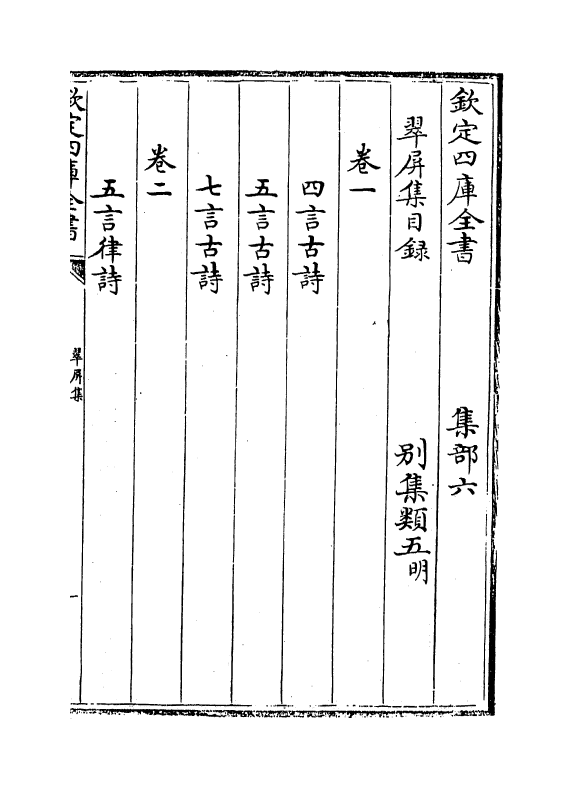 欽定四庫全書　集部六
翠屏集目録　别集類五明
卷一
四言古詩
五言古詩
七言古詩
卷二
五言律詩
欽定四庫全書　翠屏集　一